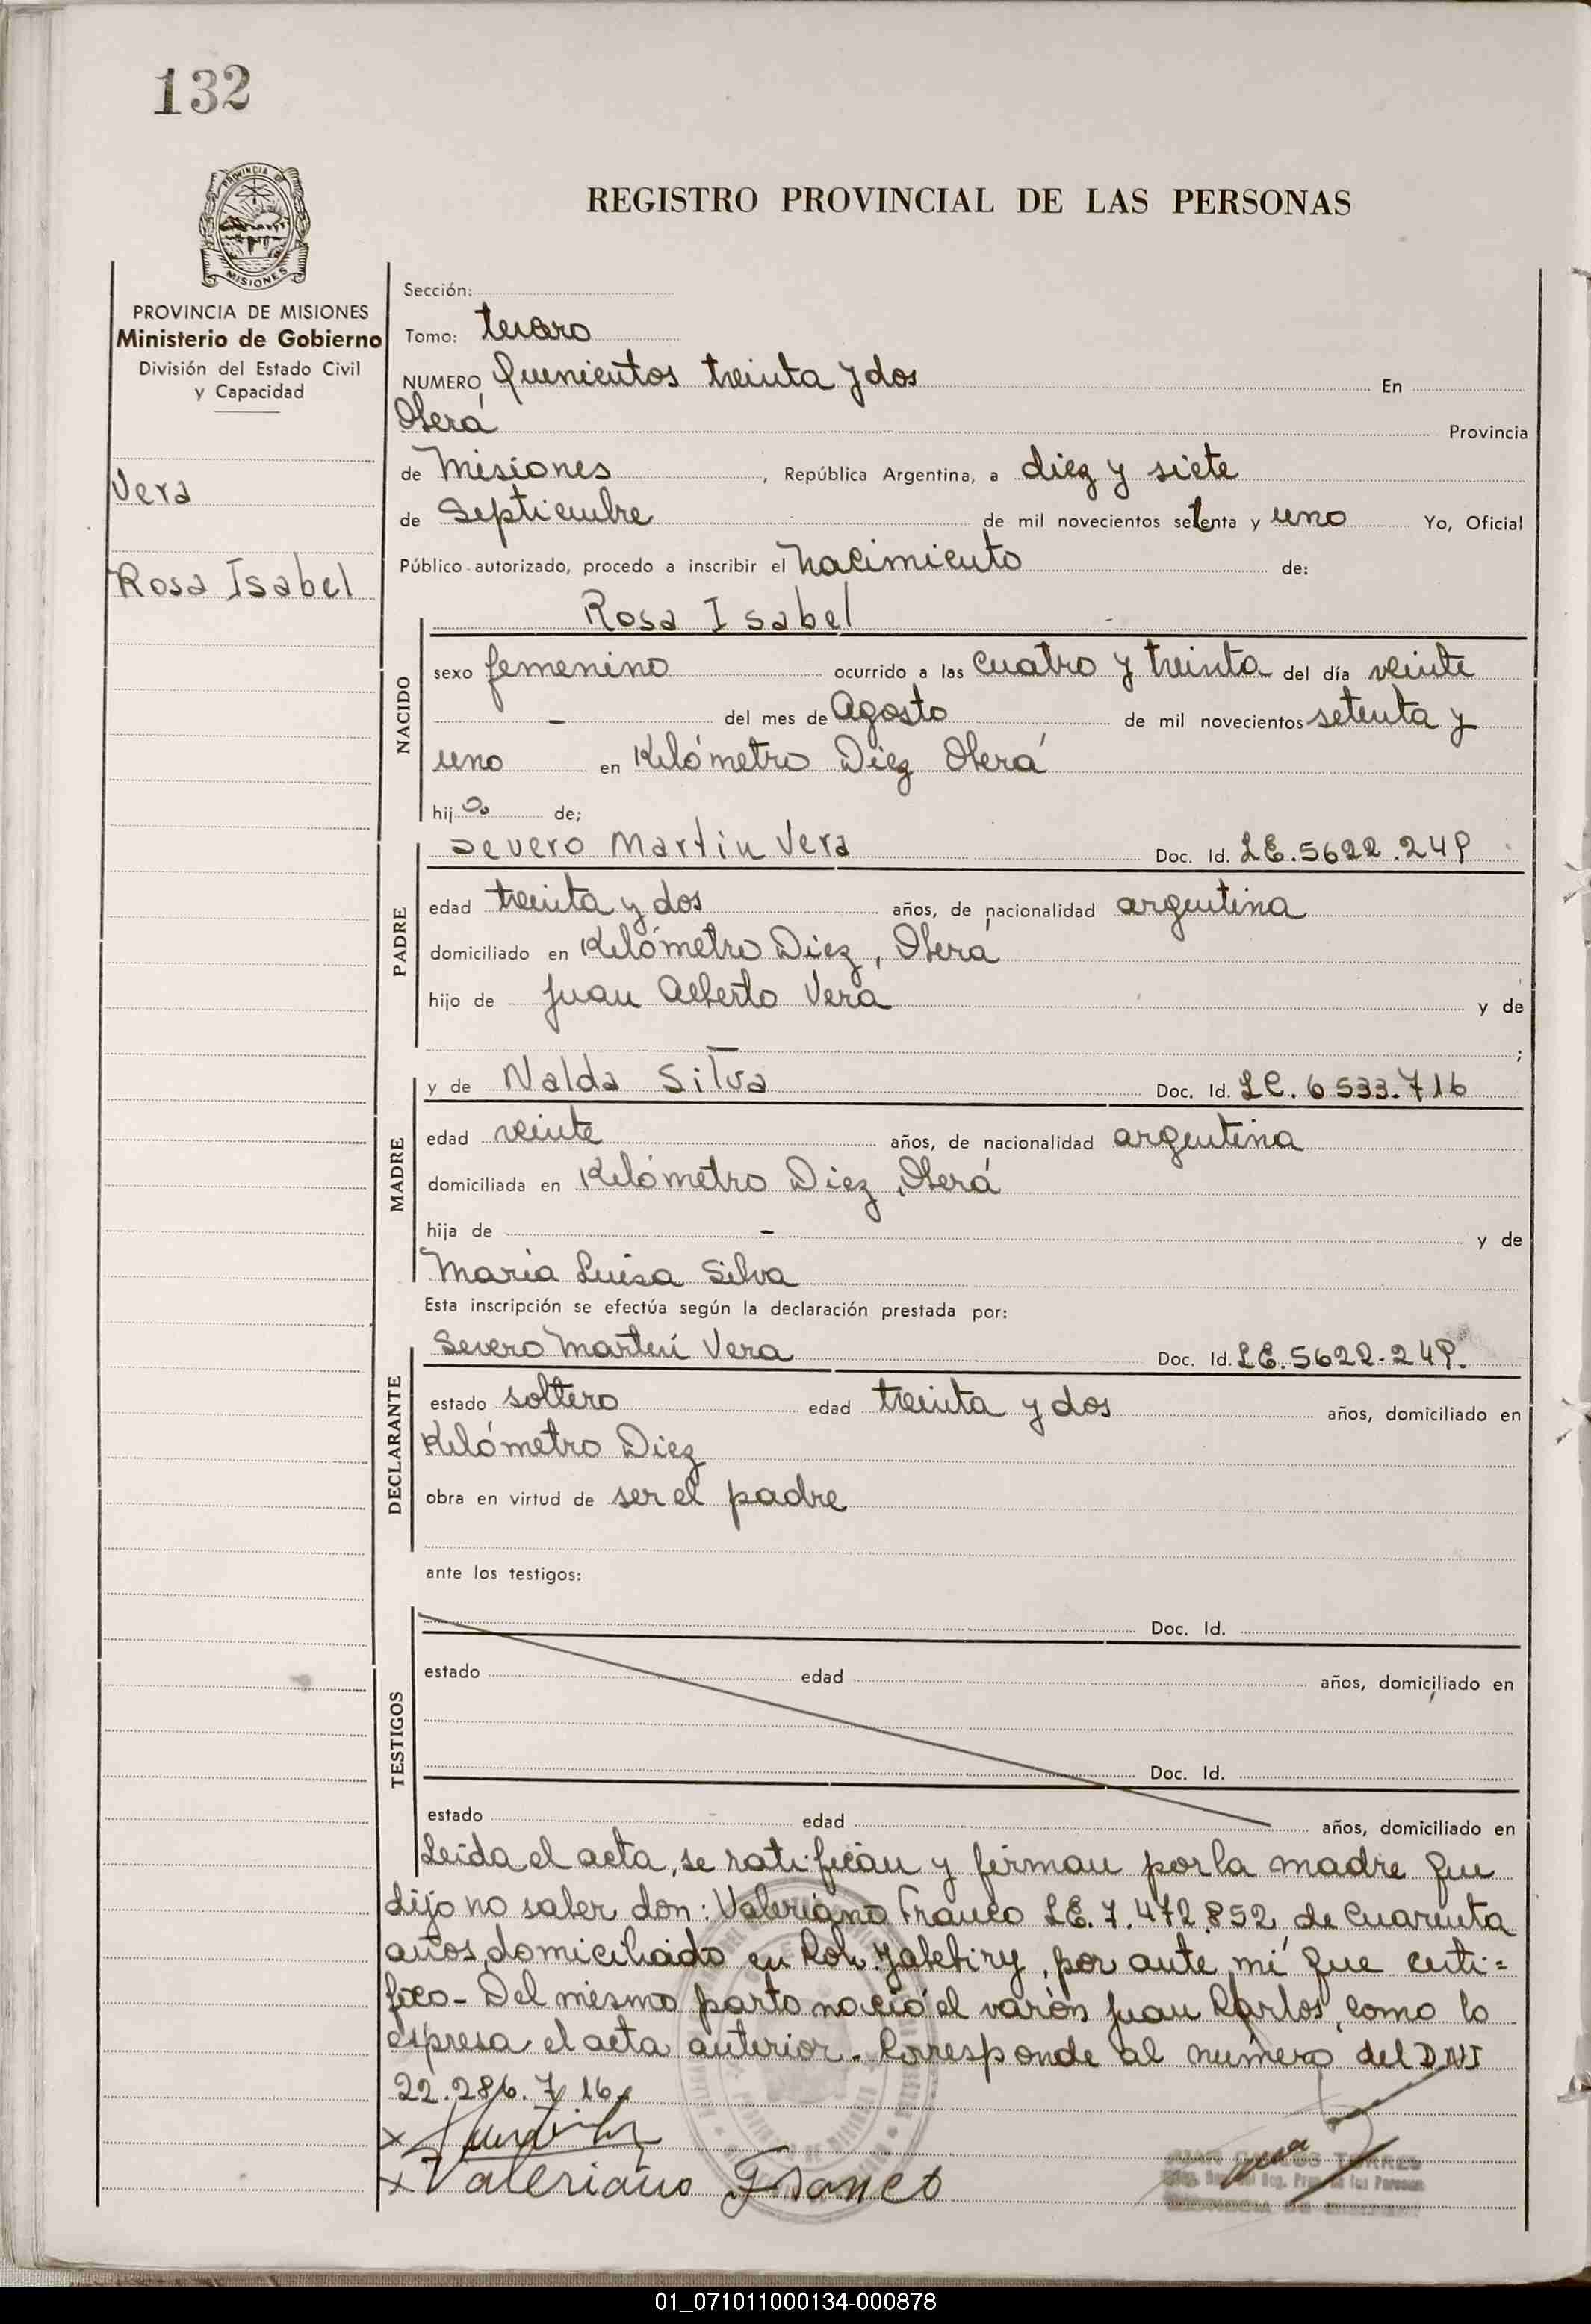 132
PROVINCIA DE
MISIONES
REGISTRO PROVINCIAL DE LAS PERSONAS
PROVINCIA DE MISIONES
Ministerio de Gobierno
División del Estado Civil
y Capacidad
Vera
Rosa Isabel
Sección:
Tomo: tercero
NUMERO Quinientos treinta y dos En
Oberá Provincia
de Misiones, República Argentina, a diez y siete
de Septiembre de mil novecientos setenta y uno Yo, Oficial
Público autorizado, procedo a inscribir el nacimiento de:
Rosa Isabel
NACIDO
sexo femenino ocurrido a las cuatro y treinta del día veinte
- del mes de Agosto de mil novecientos setenta y
uno en Kilómetro Diez Oberá
hija de;
Severo Martin Vera Doc. Id. LE. 5622.249
PADRE
edad treinta y dos años, de nacionalidad argentina
domiciliado en Kilómetro Diez, Oberá
hijo de Juan Alberto Vera y de
— ;
y de Nalda Silva Doc. Id. LC. 6533.716
MADRE
edad veinte años, de nacionalidad argentina
domiciliada en Kilómetro Diez, Oberá
hija de - y de
María Luisa Silva
Esta inscripción se efectúa según la declaración prestada por:
Severo Martín Vera Doc. Id. LE. 5622.249.
DECLARANTE
estado soltero edad treinta y dos años, domiciliado en
Kilómetro Diez
obra en virtud de ser el padre
ante los testigos:
TESTIGOS
Doc. Id.
estado edad años, domiciliado en
Doc. Id.
estado edad años, domiciliado en
Leida el acta, se ratifican y firman por la madre que
dijo no saber don: Valeriano Franco LE. 7.472.852, de cuarenta
años, domiciliado en Col. Yabebiry, por ante mí que certi=
fico- Del mismo parto nació el varón Juan Carlos, como lo
espresa el acta anterior. Corresponde al número del DNI
22.286.716.
x
x Valeriano Franco
JUAN CARLOS TORRES
01_071011000134-000878